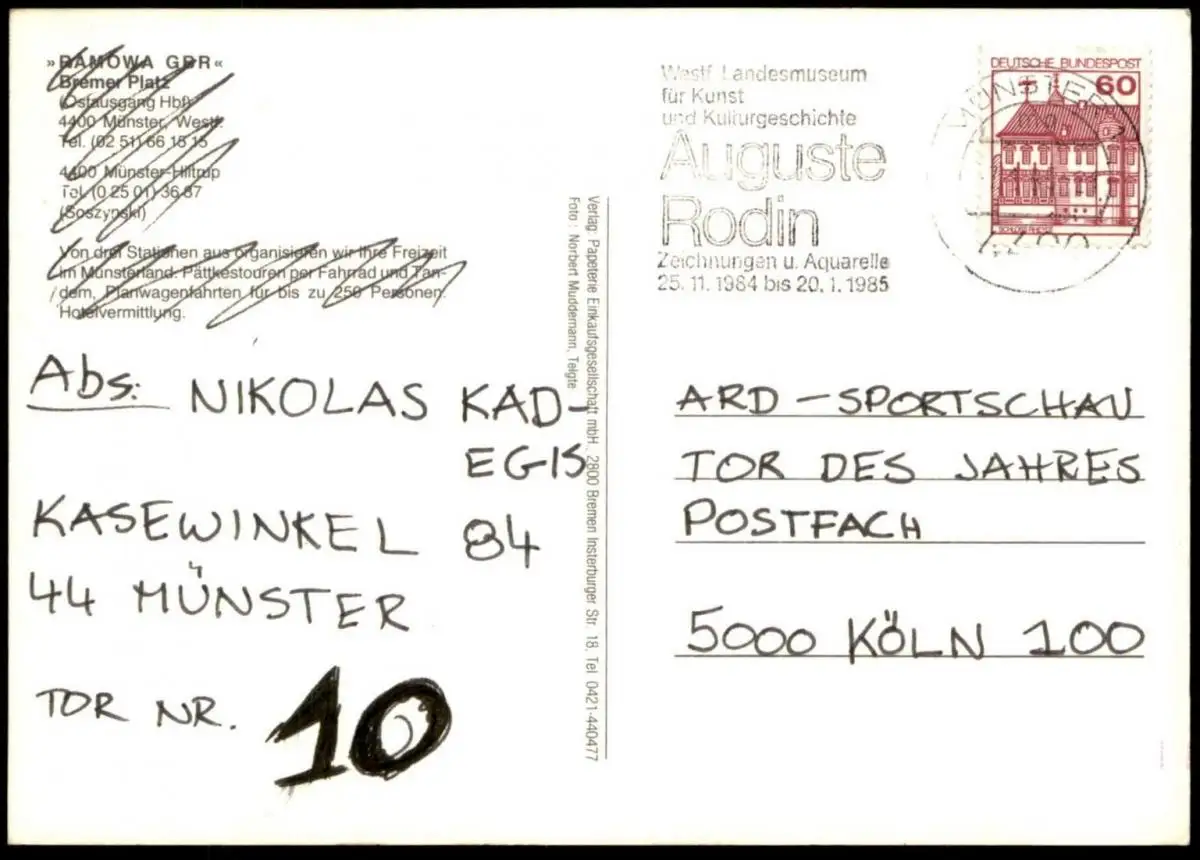 »RAMOWA GBR«
Bremer Platz
(Ostausgang Hbf)
4400 Münster, Westf.
Tel. (02 51) 66 15 15
4400 Münster-Hiltrup
Tel. (0 25 01) 36 87
(Soszynski)
Von drei Stationen aus organisieren wir Ihre Freizeit
im Münsterland. Pättkestouren per Fahrrad und Tan-
dem, Planwagenfahrten für bis zu 250 Personen.
Hotelvermittlung.
Abs: NIKOLAS KAD-
EGIS
KASEWINKEL 84
44 MÜNSTER
TOR NR. 10
Verlag: Papeterie Einkaufsgesellschaft mbH, 2800 Bremen Insterburger Str. 18, Tel 0421-440477
Foto: Norbert Muddemann, Telgte
Westf. Landesmuseum
für Kunst
und Kulturgeschichte
Auguste
Rodin
Zeichnungen u. Aquarelle
25. 11. 1984 bis 20. 1. 1985
DEUTSCHE BUNDESPOST
60
MÜNSTER
4400
ARD - SPORTSCHAU
TOR DES JAHRES
POSTFACH
5000 KÖLN 100